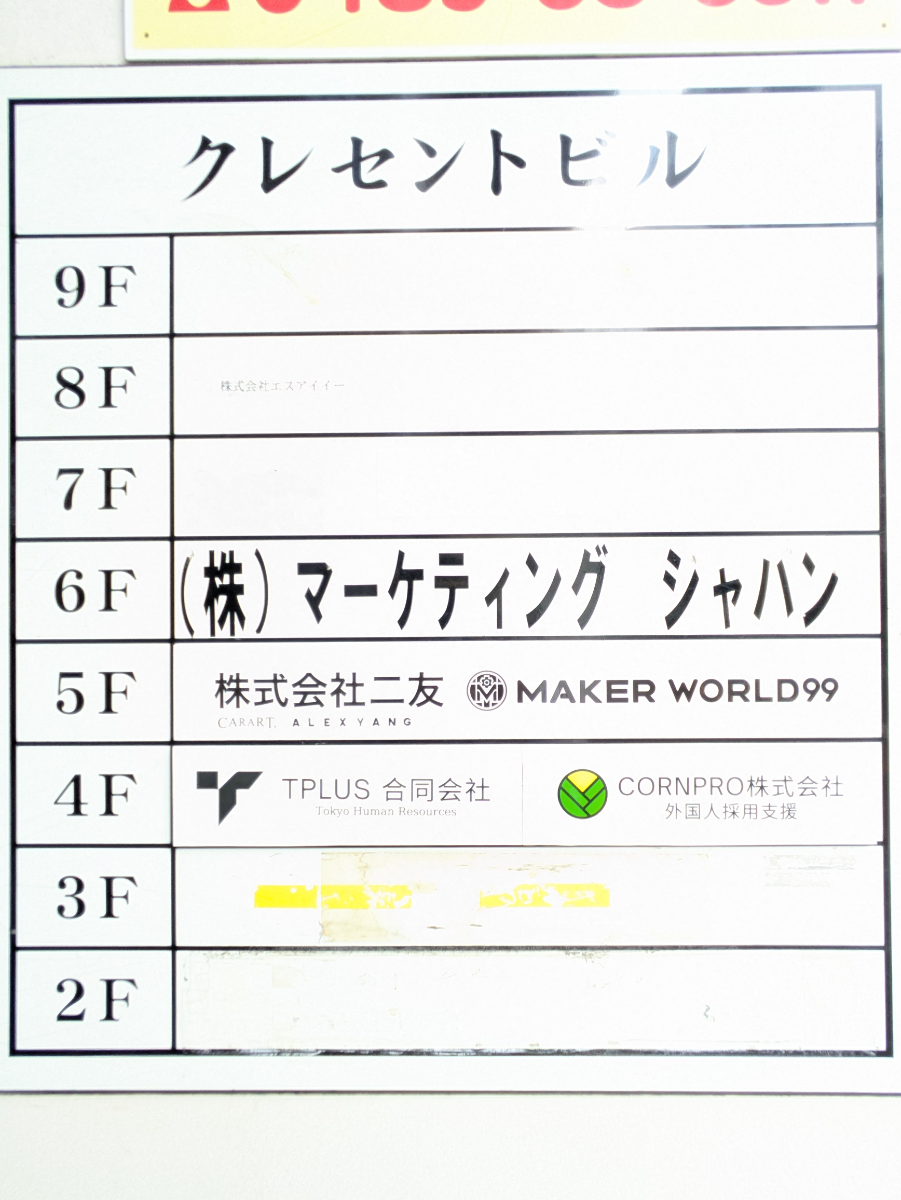 クレセントビル
9F
8F 株式会社エスアイイー
7F
6F (株)マーケティング シャハン
5F 株式会社二友 MAKER WORLD99
CARART. ALEXYANG
4F TPLUS 合同会社 CORNPRO株式会社
Tokyo Human Resources 外国人採用支援
3F
2F